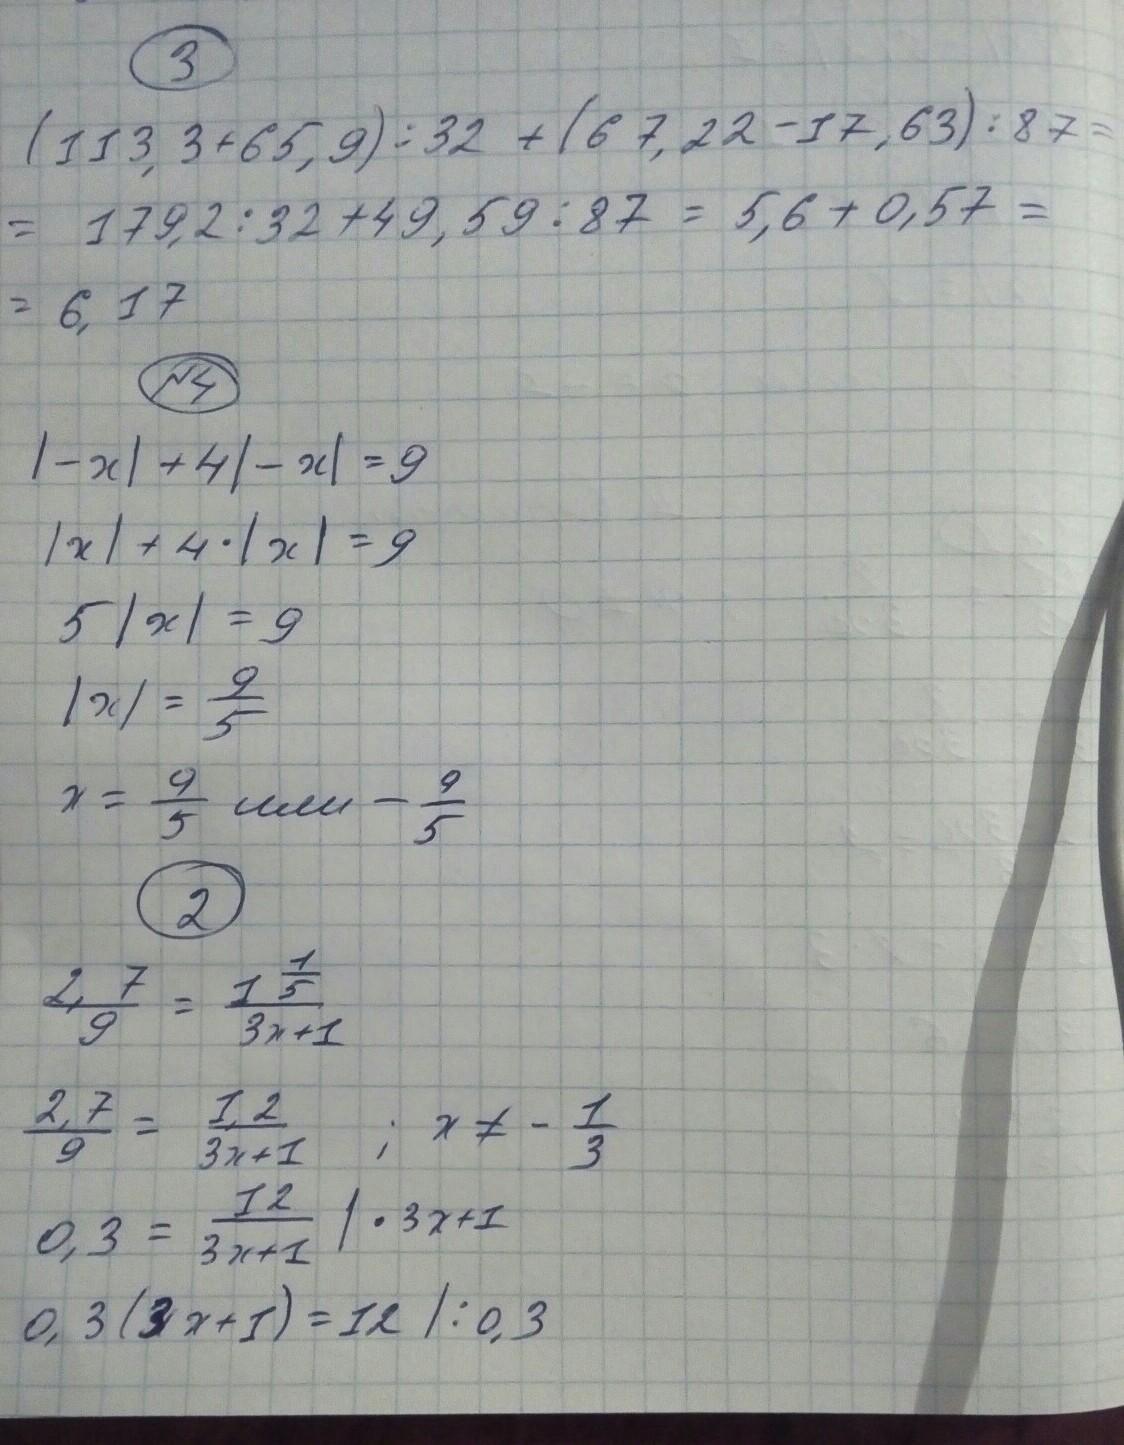 3
(113,3+65,9):32 + (67,22-17,63):87=
= 179,2:32+49,59:87 = 5,6+0,57 =
= 6,17
№4
|-x|+4|-x|=9
|x|+4·|x|=9
5|x|=9
|x|=9/5
x=9/5 или -9/5
2
2,7/9 = 1 1/5/3x+1
2,7/9 = 1,2/3x+1 ; x≠-1/3
0,3 = 12/3x+1 |·3x+1
0,3(3x+1)=12 |:0,3